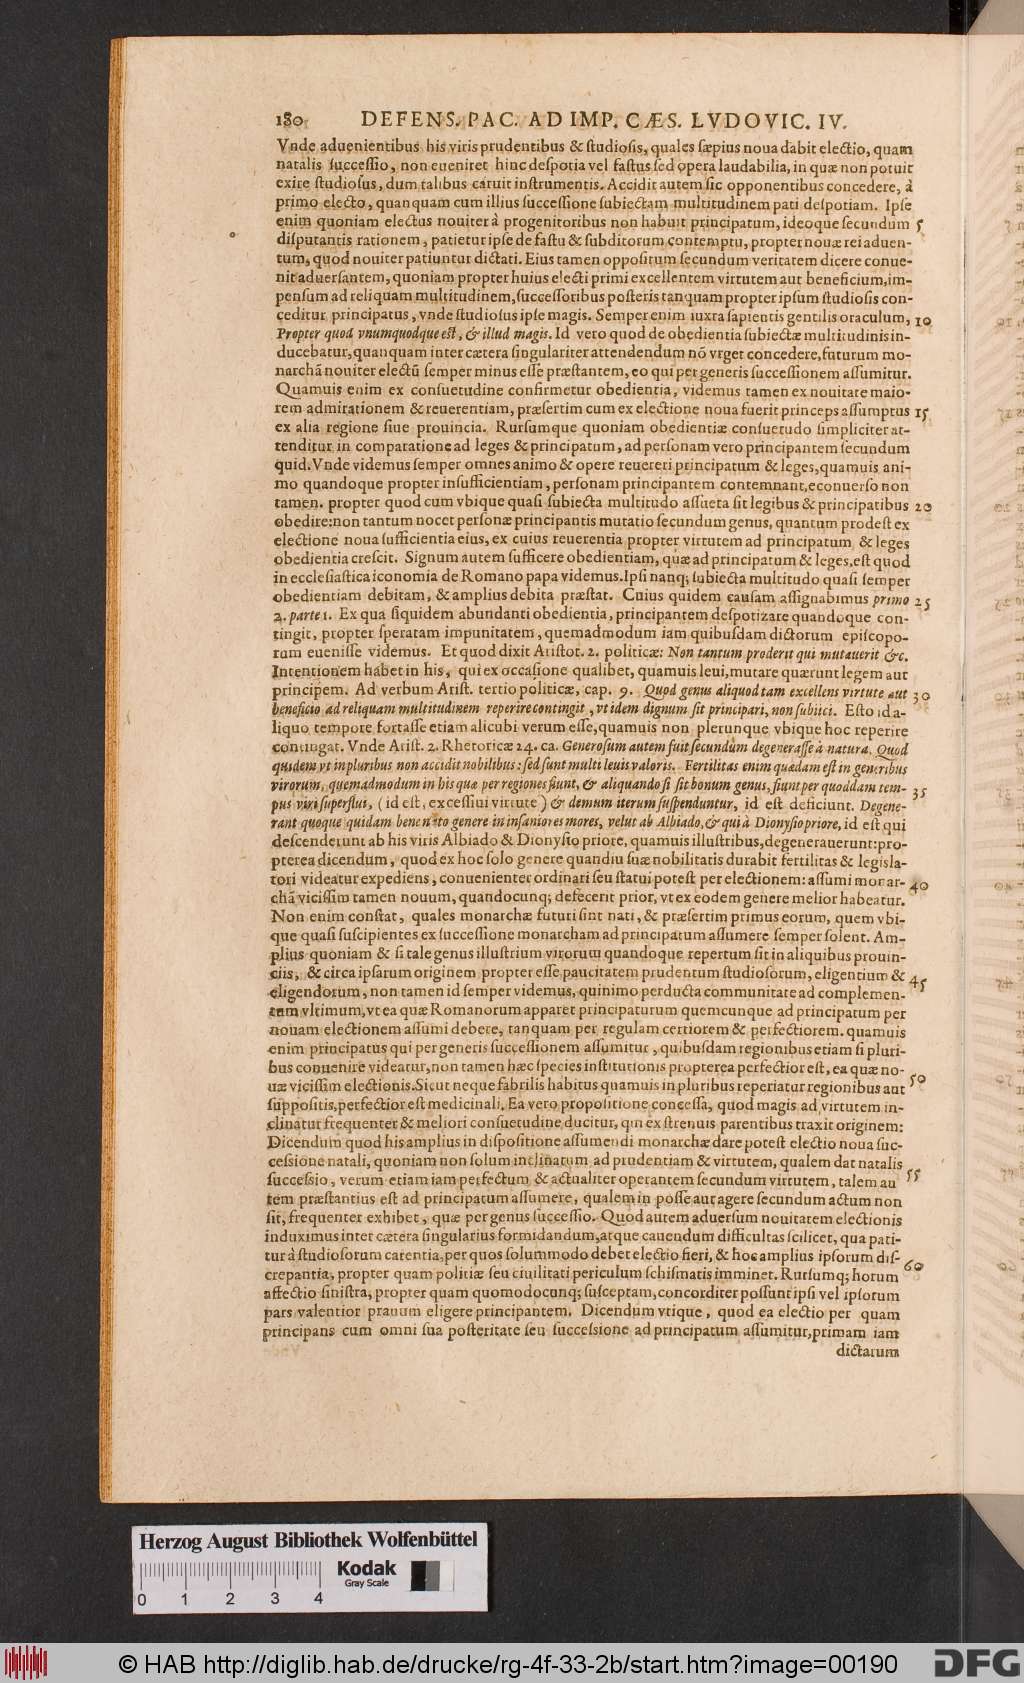 180 DEFENS. PAC. AD IMP. CÆS. LVDOVIC. IV.
Vnde aduenientibus his viris prudentibus & ſtudioſis, quales ſæpius noua dabit electio, quam
natalis ſucceſſio, non eueniret hinc deſpotia vel faſtus ſed opera laudabilia, in quæ non potuit
exire ſtudioſus, dum talibus caruit inſtrumentis. Accidit autem ſic opponentibus concedere, à
primo electo, quanquam cum illius ſucceſſione ſubiectam multitudinem pati deſpotiam. Ipſe
enim quoniam electus nouiter à progenitoribus non habuit principatum, ideoque ſecundum 5
diſputantis rationem, patietur ipſe de faſtu & ſubditorum contemptu, propter nouæ rei aduen-
tum, quod nouiter patiuntur dictati. Eius tamen oppoſitum ſecundum veritatem dicere conue-
nit aduerſantem, quoniam propter huius electi primi excellentem virtutem aut beneficium, im-
penſum ad reliquam multitudinem, ſucceſſoribus poſteris tanquam propter ipſum ſtudioſis con-
ceditur principatus, vnde ſtudioſus ipſe magis. Semper enim iuxta ſapientis gentilis oraculum, 10
Propter quod vnumquodque eſt, & illud magis. Id vero quod de obedientia ſubiectæ multitudinis in-
ducebatur, quanquam inter cætera ſingulariter attendendum nō vrget concedere, futurum mo-
narchā nouiter electū ſemper minus eſſe præſtantem, eo qui per generis ſucceſſionem aſſumitur.
Quamuis enim ex conſuetudine confirmetur obedientia, videmus tamen ex nouitate maio-
rem admirationem & reuerentiam, præſertim cum ex electione noua fuerit princeps aſſumptus 15
ex alia regione ſiue prouincia. Rurſumque quoniam obedientiæ conſuetudo ſimpliciter at-
tenditur in comparatione ad leges & principatum, ad perſonam vero principantem ſecundum
quid. Vnde videmus ſemper omnes animo & opere reuereri principatum & leges, quamuis ani-
mo quandoque propter inſufficientiam, perſonam principantem contemnant, econuerſo non
tamen. propter quod cum vbique quaſi ſubiecta multitudo aſſueta ſit legibus & principatibus 20
obedire: non tantum nocet perſonæ principantis mutatio ſecundum genus, quantum prodeſt ex
electione noua ſufficientia eius, ex cuius reuerentia propter virtutem ad principatum & leges
obedientia creſcit. Signum autem ſufficere obedientiam, quæ ad principatum & leges, eſt quod
in eccleſiaſtica iconomia de Romano papa videmus. Ipſi nanq; ſubiecta multitudo quaſi ſemper
obedientiam debitam, & amplius debita præſtat. Cuius quidem cauſam aſſignabimus primo 25
2. parte 1. Ex qua ſiquidem abundanti obedientia, principantem deſpotizare quandoque con-
tingit, propter ſperatam impunitatem, quemadmodum iam quibuſdam dictorum epiſcopo-
rum eueniſſe videmus. Et quod dixit Ariſtot. 2. politicæ: Non tantum proderit qui mutauerit &c.
Intentionem habet in his, qui ex occaſione qualibet, quamuis leui, mutare quærunt legem aut
principem. Ad verbum Ariſt. tertio politicæ, cap. 9. Quod genus aliquod tam excellens virtute aut 30
beneficio ad reliquam multitudinem reperire contingit, vt idem dignum ſit principari, non ſubiici. Eſto id a-
liquo tempore fortaſſe etiam alicubi verum eſſe, quamuis non plerunque vbique hoc reperire
contingat. Vnde Ariſt. 2. Rhetoricæ 24. ca. Generoſum autem fuit ſecundum degeneraſſe à natura. Quod
quidem vt in pluribus non accidit nobilibus: ſed ſunt multi leuis valoris. Fertilitas enim quædam eſt in generibus
virorum, quemadmodum in his quæ per regiones fiunt, & aliquando ſi ſit bonum genus, fiunt per quoddam tem-
pus viri ſuperflui, (id eſt, exceſſiui virtute) & demum iterum ſuſpenduntur, id eſt deficiunt. Degene- 35
rant quoque quidam bene nato genere in inſaniores mores, velut ab Albiado, & qui à Dionyſio priore, id eſt qui
deſcenderunt ab his viris Albiado & Dionyſio priore, quamuis illuſtribus, degenerauerunt: pro-
pterea dicendum, quod ex hoc ſolo genere quandiu ſuæ nobilitatis durabit fertilitas & legisla-
tori videatur expediens, conuenienter ordinari ſeu ſtatui poteſt per electionem: aſſumi monar- 40
chā viciſſim tamen nouum, quandocunq; defecerit prior, vt ex eodem genere melior habeatur.
Non enim conſtat, quales monarchæ futuri ſint nati, & præſertim primus eorum, quem vbi-
que quaſi ſuſcipientes ex ſucceſſione monarcham ad principatum aſſumere ſemper ſolent. Am-
plius quoniam & ſi tale genus illuſtrium virorum quandoque repertum ſit in aliquibus prouin-
ciis, & circa ipſarum originem propter eſſe paucitatem prudentum ſtudioſorum, eligentium & 45
eligendorum, non tamen id ſemper videmus, quinimo perducta communitate ad complemen-
tum vltimum, vt ea quæ Romanorum apparet principaturum quemcunque ad principatum per
nouam electionem aſſumi debere, tanquam per regulam certiorem & perfectiorem. quamuis
enim principatus qui per generis ſucceſſionem aſſumitur, quibuſdam regionibus etiam ſi pluri-
bus conuenire videatur, non tamen hæc ſpecies inſtitutionis propterea perfectior eſt, ea quæ no-
uæ viciſſim electionis. Sicut neque fabrilis habitus quamuis in pluribus reperiatur regionibus aut 50
ſuppoſitis, perfectior eſt medicinali. Ea vero propoſitione conceſſa, quod magis ad virtutem in-
clinatur frequenter & meliori conſuetudine ducitur, qui ex ſtrenuis parentibus traxit originem:
Dicendum quod his amplius in diſpoſitione aſſumendi monarchæ dare poteſt electio noua ſuc-
ceſsione natali, quoniam non ſolum inclinatum ad prudentiam & virtutem, qualem dat natalis
ſucceſsio, verum etiam iam perfectum & actualiter operantem ſecundum virtutem, talem au 55
tem præſtantius eſt ad principatum aſſumere, qualem in poſſe aut agere ſecundum actum non
ſit, frequenter exhibet, quæ per genus ſucceſſio. Quod autem aduerſum nouitatem electionis
induximus inter cætera ſingularius formidandum, atque cauendum difficultas ſcilicet, qua pati-
tur à ſtudioſorum carentia, per quos ſolummodo debet electio fieri, & hoc amplius ipſorum diſ-
crepantia, propter quam politiæ ſeu ciuilitati periculum ſchiſmatis imminet. Rurſumq; horum 60
affectio ſiniſtra, propter quam quomodocunq; ſuſceptam, concorditer poſſunt ipſi vel ipſorum
pars valentior prauum eligere principantem. Dicendum vtique, quod ea electio per quam
principans cum omni ſua poſteritate ſeu ſucceſsione ad principatum aſſumitur, primam iam
dictarum
Herzog August Bibliothek Wolfenbüttel
Kodak
Gray Scale
0 1 2 3 4
© HAB http://diglib.hab.de/drucke/rg-4f-33-2b/start.htm?image=00190
DFG